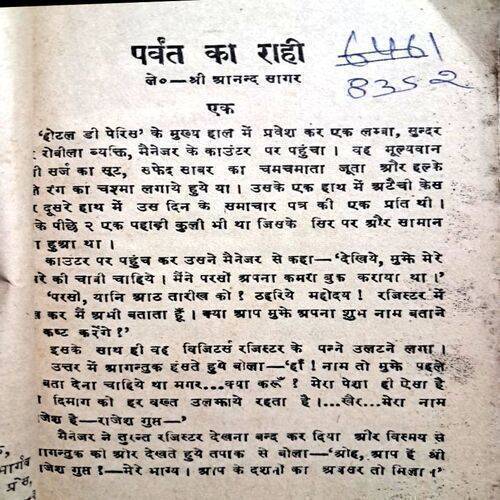 पर्वत का राही
6461
8352
ले०—श्री आनन्द सागर
एक
'होटल डी पेरिस' के मुख्य हाल में प्रवेश कर एक लम्बा, सुन्दर
रोबीला व्यक्ति, मैनेजर के काउंटर पर पहुंचा । वह मूल्यवान
सर्ज का सूट, सफेद साबर का चमचमाता जूता और हल्के
रंग का चश्मा लगाये हुये था । उसके एक हाथ में अटैची केस
दूसरे हाथ में उस दिन के समाचार पत्र की एक प्रति थी ।
के पीछे २ एक पहाड़ी कुली भी था जिसके सिर पर और सामान
हुआ था ।
काउंटर पर पहुंच कर उसने मैनेजर से कहा—'देखिये, मुझे मेरे
रे की चाबी चाहिये । मैंने परसों अपना कमरा बुक कराया था ।'
'परसों, यानि आठ तारीख को ! ठहरिये महोदय ! रजिस्टर में
कर मैं अभी बताता हूँ । क्या आप मुझे अपना शुभ नाम बताने
कष्ट करेंगे ?'
इसके साथ ही वह विजिटर्स रजिस्टर के पन्ने उलटने लगा ।
उत्तर में आगन्तुक हंसते हुये बोला—'हाँ ! नाम तो मुझे पहले
बता देना चाहिये था मगर...क्या करूँ ? मेरा पेशा ही ऐसा है
दिमाग को हर वक्त उलझाये रहता है ।...खैर...मेरा नाम
जेश है—राजेश गुप्त—'
मैनेजर ने तुरन्त रजिस्टर देखना बन्द कर दिया और विस्मय से
गन्तुक की ओर देखते हुये तपाक से बोला—'ओह, आप हैं श्री
जेश गुप्त !—मेरे भाग्य । आप के दर्शनों का अवसर तो मिला ।'
भार्गव
प्रेस,